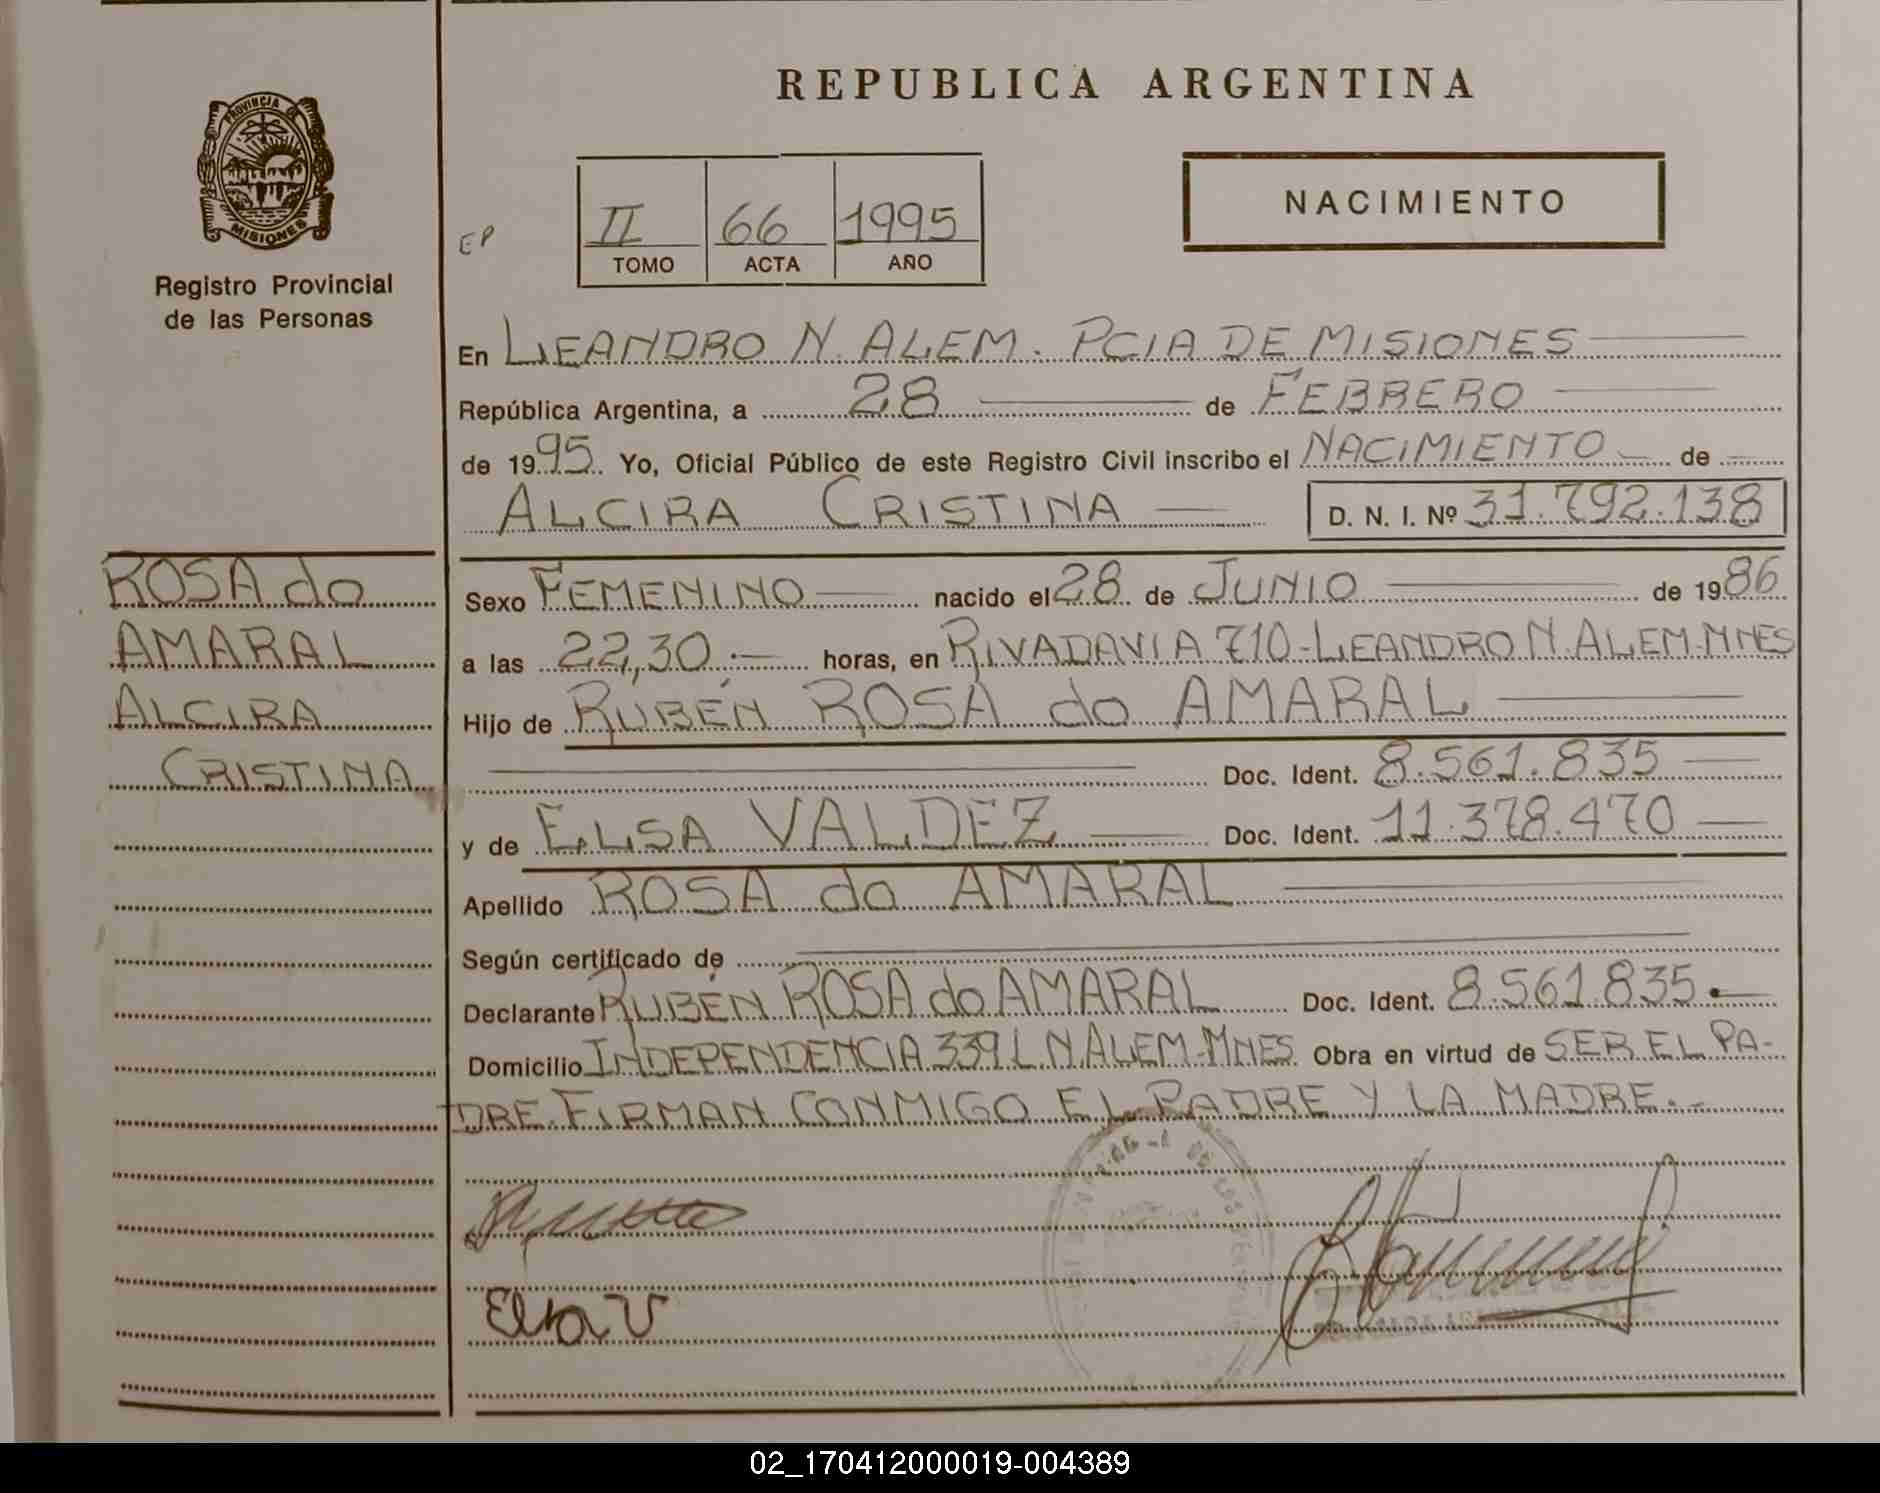 REPUBLICA ARGENTINA
PROVINCIA DE
MISIONES
Registro Provincial
de las Personas
NACIMIENTO
EP
II 66 1995
TOMO ACTA AÑO
En LEANDRO N. ALEM. PCIA DE MISIONES
República Argentina, a 28 de FEBRERO
de 1995. Yo, Oficial Público de este Registro Civil inscribo el NACIMIENTO de
ALCIRA CRISTINA D. N. I. Nº 31.792.138
ROSA do
AMARAL
ALCIRA
CRISTINA
Sexo FEMENINO nacido el 28 de JUNIO de 1986
a las 22,30.- horas, en RIVADAVIA 710-LEANDRO N. ALEM-MNES
Hijo de RUBÉN ROSA do AMARAL
Doc. Ident. 8.561.835
y de ELISA VALDEZ Doc. Ident. 11.378.470
Apellido ROSA do AMARAL
Según certificado de
Declarante RUBÉN ROSA do AMARAL Doc. Ident. 8.561.835.-
Domicilio INDEPENDENCIA 339 L.N.ALEM-MNES. Obra en virtud de SER EL PA-
DRE. FIRMAN CONMIGO EL PADRE Y LA MADRE.-
Elsa V
02_170412000019-004389